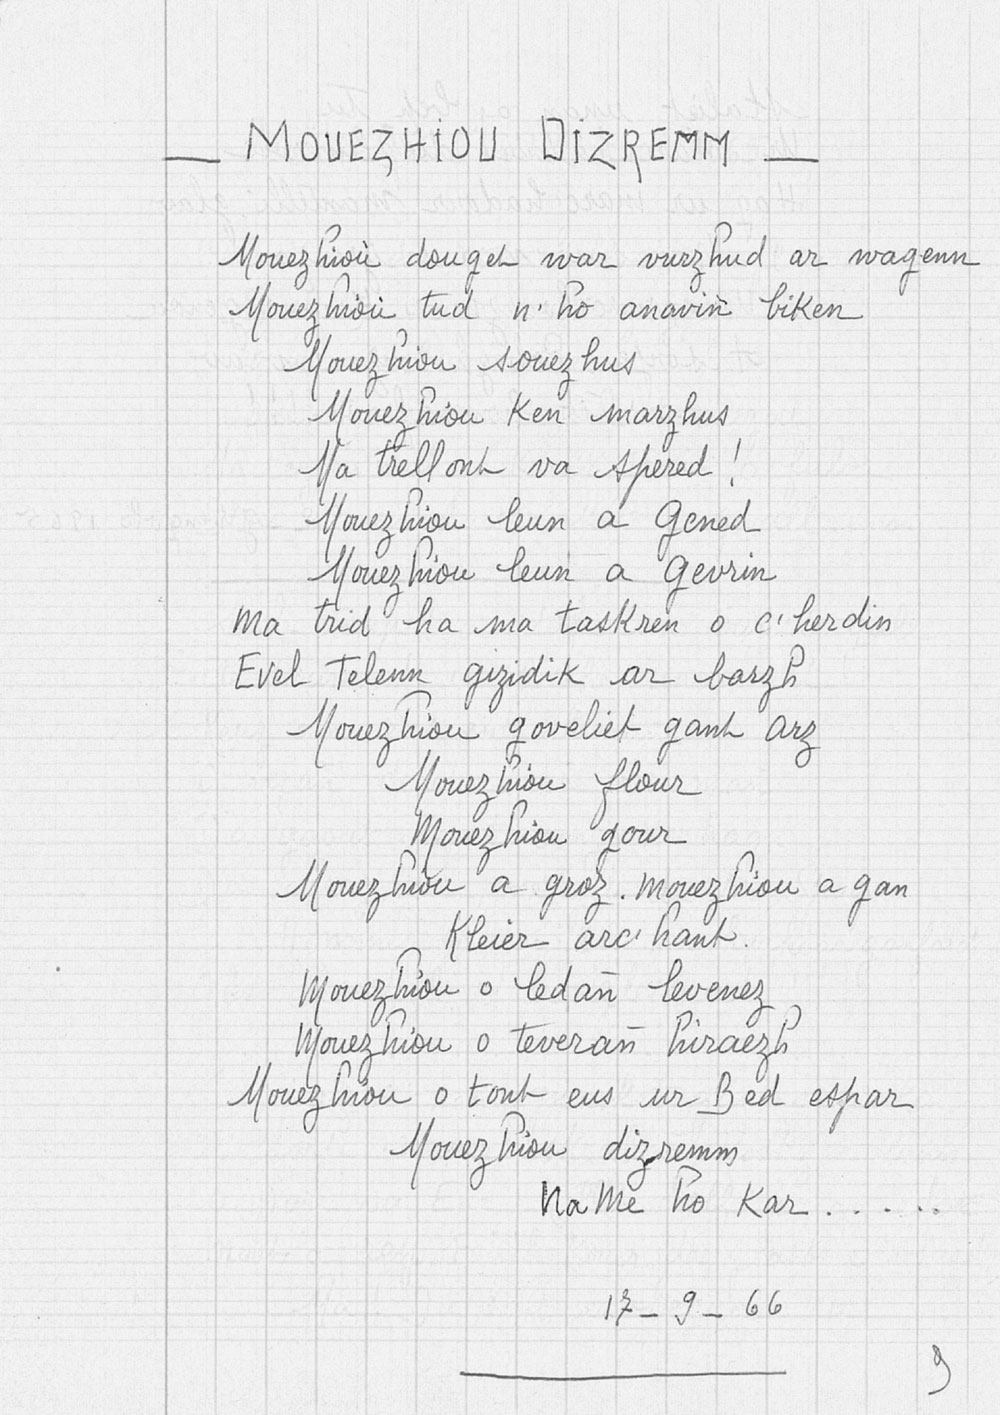 — MOUEZHIOU DIZREMM —
Mouezhioù douget war vurzhud ar wagenn
Mouezhioù tud n'ho anavin biken
Mouezhiou souezhus
Mouezhiou Ken marzhus
Ma trellont va spered !
Mouezhiou leun a Gened
Mouezhiou leun a Gevrin
Ma trid ha ma taskren o c'herdin
Evel Telenn gizidik ar barzh
Mouezhiou goveliet gant Arz
Mouezhiou flour
Mouezhiou gour
Mouezhiou a groz. Mouezhiou a gan
Kleier arc'hant.
Mouezhiou o ledañ levenez
Mouezhiou o teverañ hiraezh
Mouezhiou o tont eus ur Bed espar
Mouezhiou dizremm
Na Me ho Kar . . . . . .
17 - 9 - 66
9